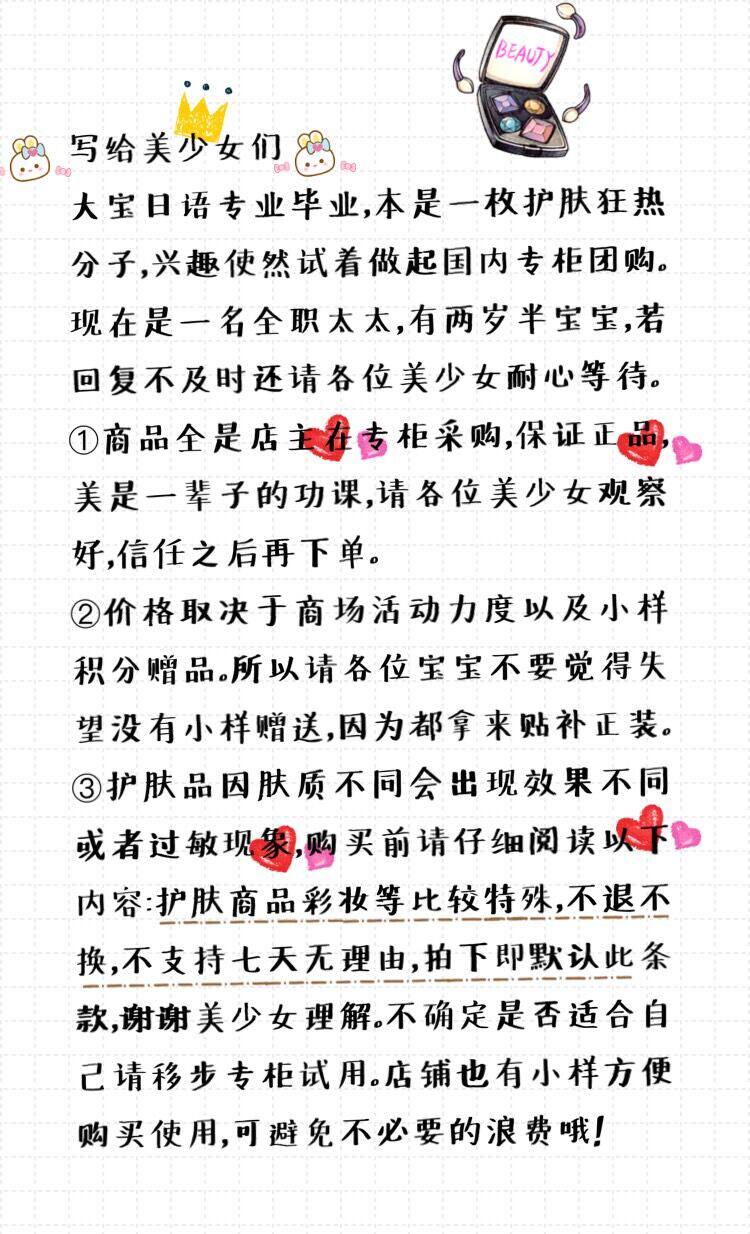 BEAUTY
写给美少女们
大宝日语专业毕业,本是一枚护肤狂热
分子,兴趣使然试着做起国内专柜团购。
现在是一名全职太太,有两岁半宝宝,若
回复不及时还请各位美少女耐心等待。
①商品全是店主在专柜采购,保证正品,
美是一辈子的功课,请各位美少女观察
好,信任之后再下单。
②价格取决于商场活动力度以及小样
积分赠品。所以请各位宝宝不要觉得失
望没有小样赠送,因为都拿来贴补正装。
③护肤品因肤质不同会出现效果不同
或者过敏现象,购买前请仔细阅读以下
内容:护肤商品彩妆等比较特殊,不退不
换,不支持七天无理由,拍下即默认此条
款,谢谢美少女理解。不确定是否适合自
己请移步专柜试用。店铺也有小样方便
购买使用,可避免不必要的浪费哦!